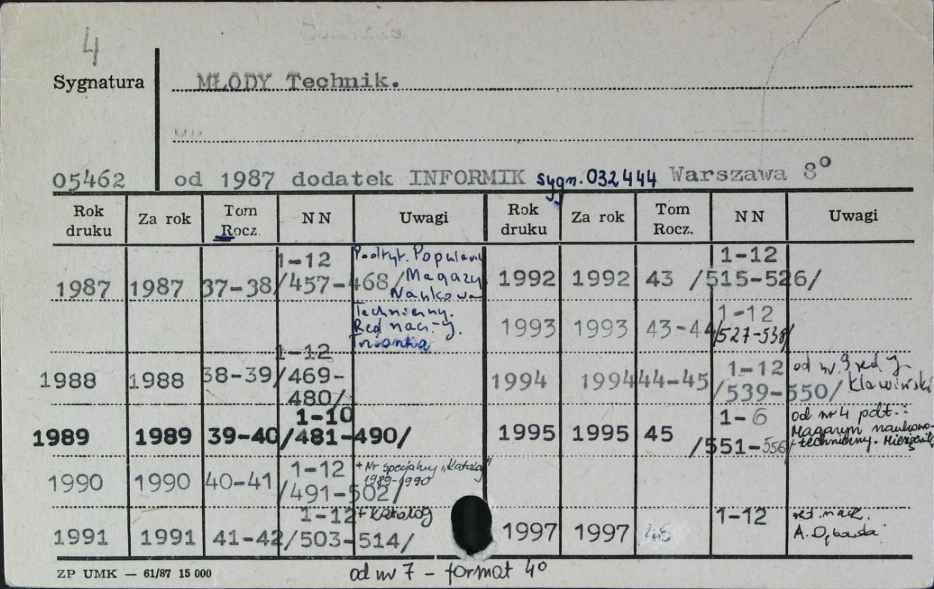 4
Sygnatura MŁODY Technik.
05462 od 1987 dodatek INFORMIK sygn. 032444 Warszawa 8°
Rok druku Za rok Tom Rocz. NN Uwagi Rok druku Za rok Tom Rocz. NN Uwagi
1987 1987 37-38 1-12 /457-468/ Podtyt. Popularn. Magazyn Naukowo Techniczny. Red. nacz. J.
1988 1988 38-39 1-12 /469-480/
1989 1989 39-40 1-10 /481-490/
1990 1990 40-41 1-12 /491-502/ + Nr specjalny "Katalog" 1989-1990
1991 1991 41-42 1-12 /503-514/ + katalog
1992 1992 43 1-12 /515-526/
1993 1993 43-44 1-12 /527-538/
1994 1994 44-45 1-12 /539-550/ od nr 9 red. J. Klawiński
1995 1995 45 1-6 /551-556/ od nr 4 pdt.: Magazyn naukowo-techniczny. Miesięcznik
1997 1997 46 1-12 red. nacz. A.
ZP UMK — 61/87 15 000
od nr 7 - format 4°